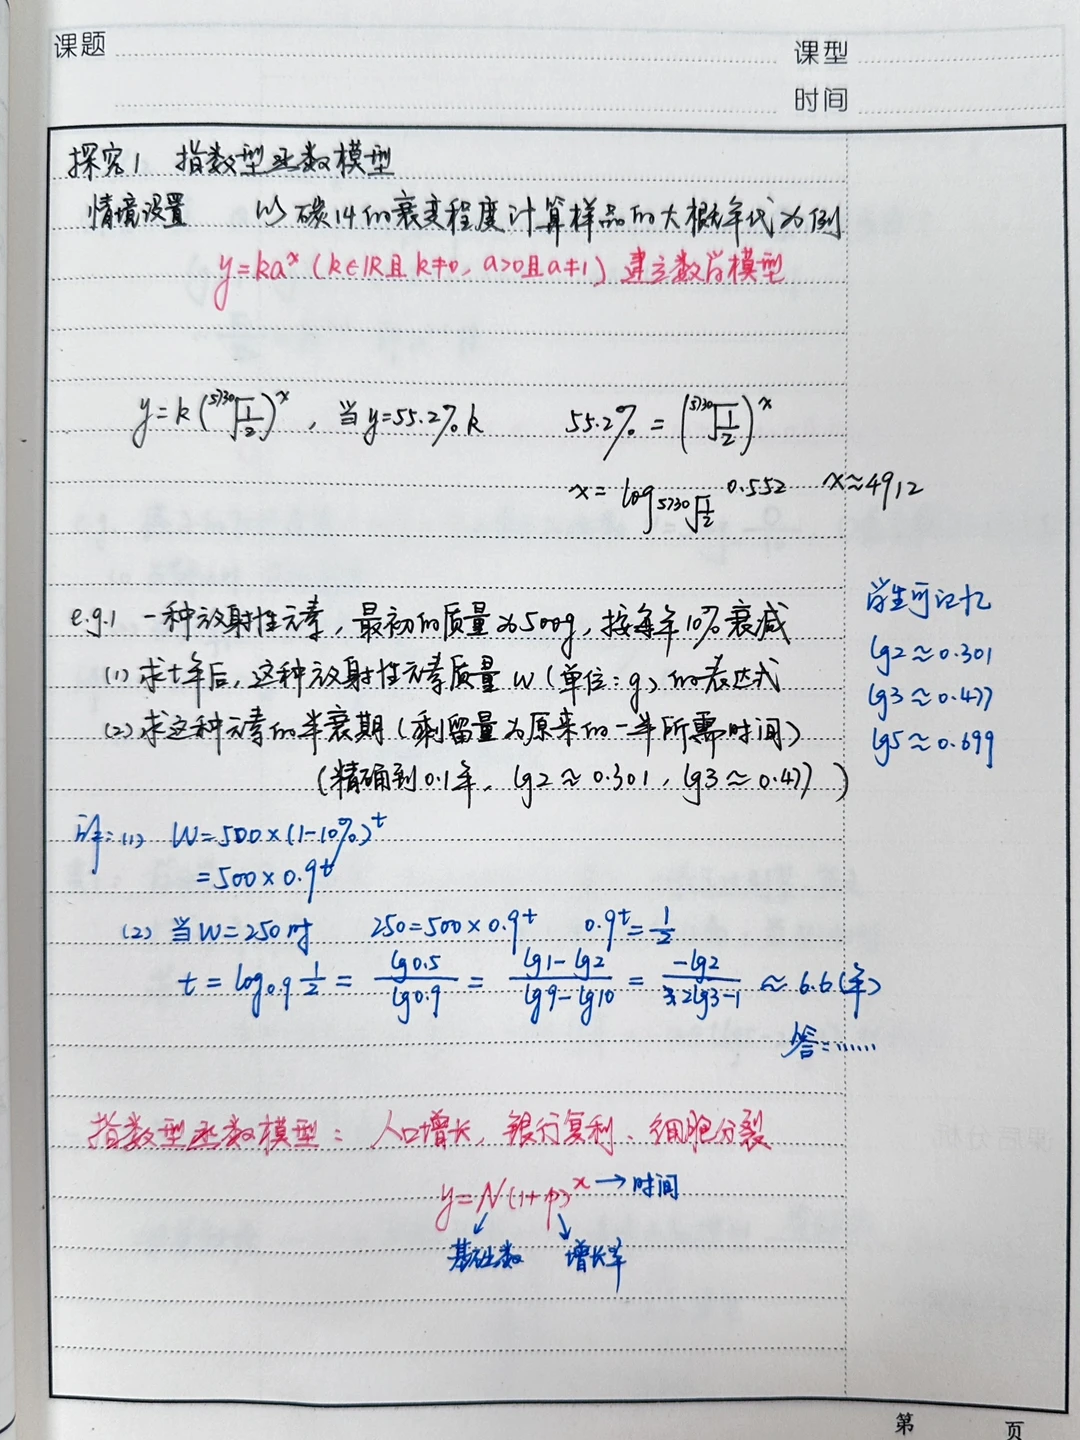 课题
课型
时间
探究1 指数型函数模型
情境设置 以碳14的衰变程度计算样品的大概年代为例
y=kaˣ (k∈R且k≠0, a>0且a≠1) 建立数学模型
y=k(⁵⁷³⁰√(1/2))ˣ , 当y=55.2%k 55.2%=(⁵⁷³⁰√(1/2))ˣ
x=log_{⁵⁷³⁰√(1/2)} 0.552 x≈4912
学生可记忆
lg2≈0.301
lg3≈0.477
lg5≈0.699
e.g.1 一种放射性元素,最初的质量为500g,按每年10%衰减
(1)求t年后,这种放射性元素质量W(单位:g)的表达式
(2)求这种元素的半衰期(剩留量为原来的一半所需时间)
(精确到0.1年,lg2≈0.301,lg3≈0.477)
解:(1) W=500×(1-10%)ᵗ
=500×0.9ᵗ
(2) 当W=250时 250=500×0.9ᵗ 0.9ᵗ=1/2
t=log₀.₉ 1/2 = lg0.5/lg0.9 = (lg1-lg2)/(lg9-lg10) = -lg2/(2lg3-1) ≈6.6(年)
答:……
指数型函数模型:人口增长、银行复利、细胞分裂
y=N(1+p)ˣ→时间
基础数 增长率
第 页